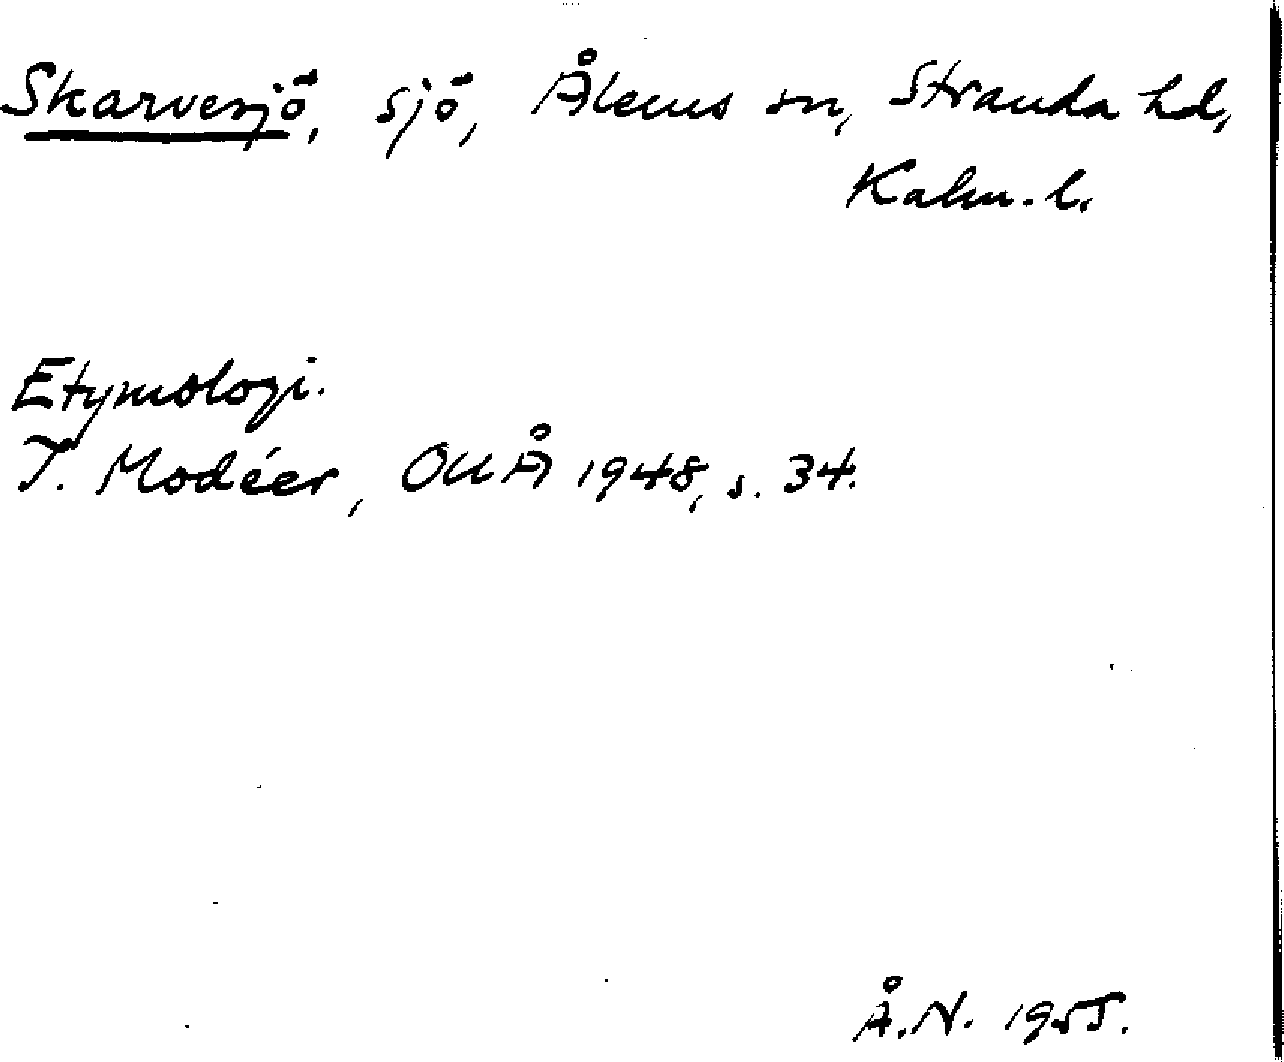 Skarvesjö, sjö, Ålems sn, Stranda hd,
Kalm. l.
Etymologi.
I. Modéer, OUÅ 1948, s. 34.
Å.N. 1955.